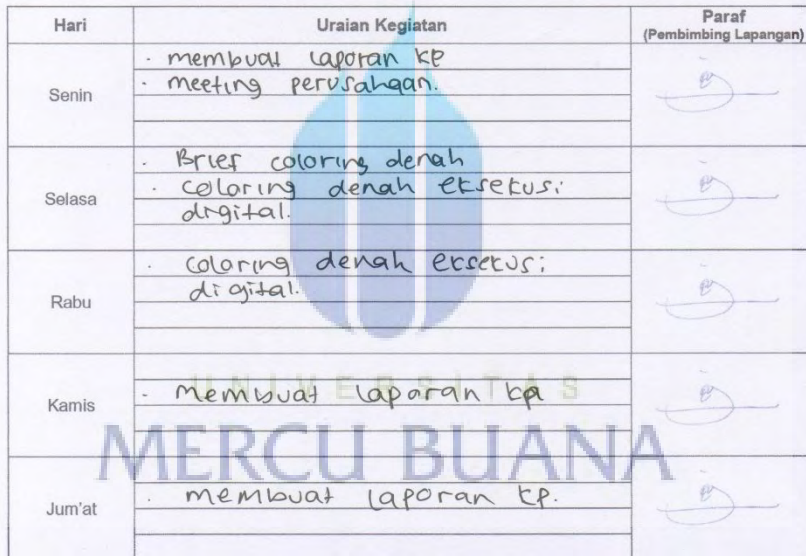 Hari Uraian Kegiatan Paraf
(Pembimbing Lapangan)
Senin
· membuat laporan KP
· meeting perusahaan.
Selasa
· Brief coloring denah
· coloring denah eksekusi
digital.
Rabu
· coloring denah eksekusi
digital.
UNIVERSITAS
Kamis
· membuat laporan kp
MERCU BUANA
Jum'at
· membuat laporan kp.